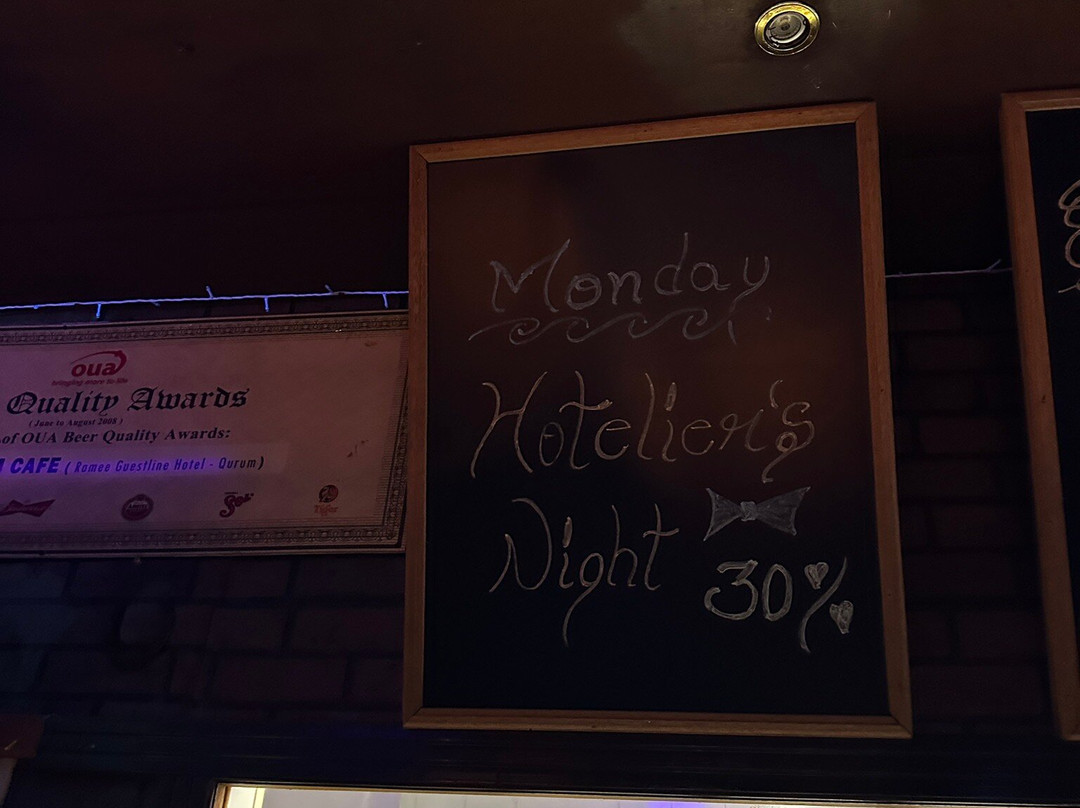 oua
bringing more to life
Quality Awards
( June to August 2008 )
of OUA Beer Quality Awards:
CAFE ( Ramee Guestline Hotel - Qurum )
Tiger
Monday
Hotelier's
Night
30%